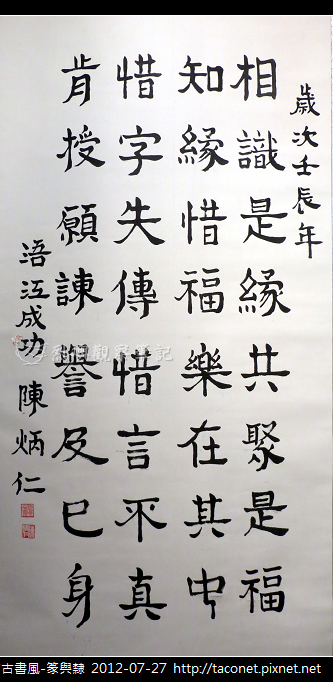 歲次壬辰年
相識是緣共聚是福
知緣惜福樂在其中
惜字失傳惜言不真
肯授願諫譽及己身
浯江成功 陳炳仁
古書風-篆與隸 2012-07-27 http://taconet.pixnet.net